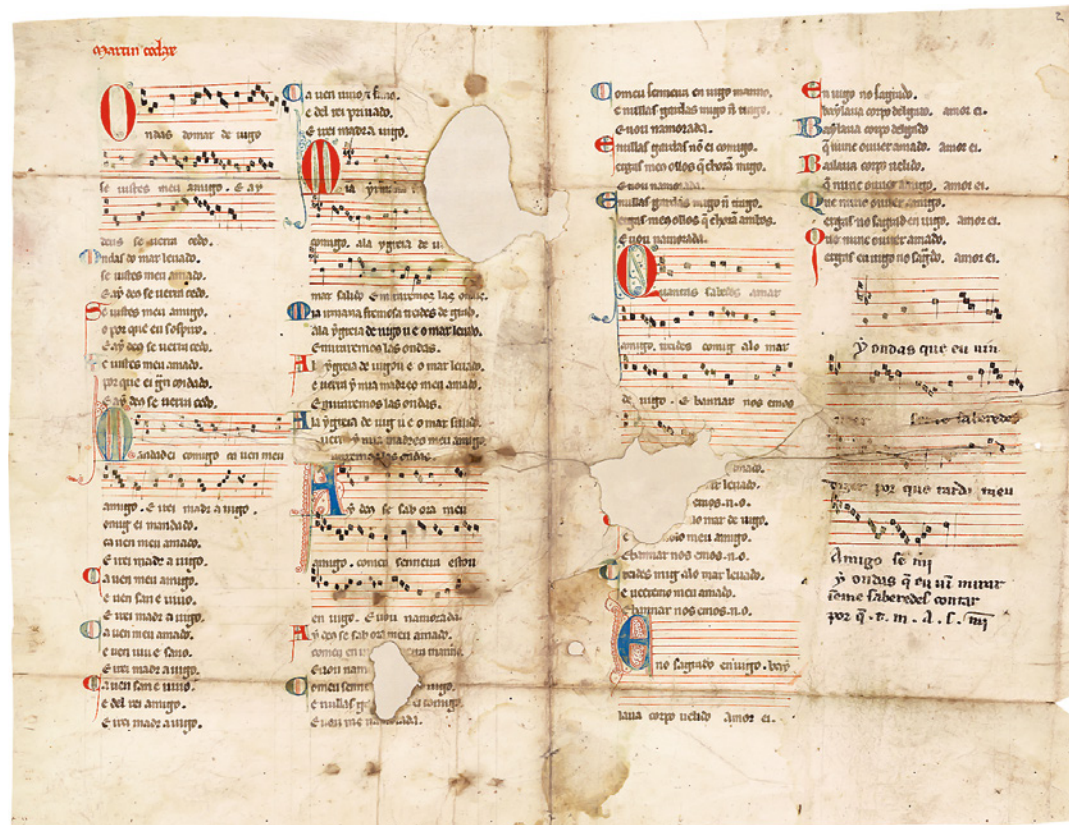 martin codax
Ondas domar de uigo
se uistes meu amigo. E ay
deus se uerra cedo.
Ondas do mar leuado.
se uistes meu amado.
E ay deo se uerra cedo.
Se uistes meu amigo,
o por que eu sospiro.
E ay deo se uerra cedo.
Se uistes meu amado.
por que ei gñ coidado.
E ay deo se uerra cedo.
Mandadei comigo ca uen meu
amigo. E irei madr a uigo.
comig ei mandado.
ca uen meu amado.
E irei madr a uigo.
Ca uen meu amigo.
e uen san e uiuo.
E irei madr a uigo.
Ca uen meu amado.
e uen uiu e sano.
E irei madr a uigo.
Ca uen san e uiuo.
e del rei amigo.
E irei madr a uigo.
Ca uen uiuo e sano.
e del rei priuado.
E irei madr a uigo.
Mia yrmana
comigo. ala ygreia de u
mar salido E miraremos las ondas.
Mia irmana fremosa treides de grado.
ala ygreia de uigo u e o mar leuado.
E miraremos las ondas.
Ala ygreia de uigo u e o mar leuado.
e uerra y mia madre o meu amado.
E miraremos las ondas.
Ala ygreia de uig u e o mar salido.
uerra y mia madre o meu amigo.
miraremos las ondas.
Ay deo se sab ora meu
amigo. comeu senneira estou
en uigo. E uou namorada.
Ay deo se sab ora meu amado.
comeu en manno.
E uou nam
Comeu senn uigo.
e nullas ga ei comigo.
E uou na rada.
Comeu senneira en uigo manno.
e nullas gardas migo ñ trago.
E uou namorada.
E nullas gardas nõ ei comigo.
ergas meo ollos q̃ chorã migo.
E uou namorada.
E nullas gardas migo ñ trago.
ergas meo ollos q̃ chorã ambos.
E uou namorada.
Quantas sabedes amar
amigo. treides comig alo mar
de uigo. E bannar nos emos
amado.
leuado.
emos. n. o.
lo mar de uigo.
meu amigo.
E bannar nos emos. n. o.
Treides mig alo mar leuado.
e ueeremo meu amado.
E bannar nos emos. n. o.
Eno sagrado en uigo. bay
laua corpo uelido Amor ei.
En uigo no sagrado.
baylaua corpo delgado. amor ei.
Baylaua corpo delgado
q̃ nunc ouuer amado. amor ei.
Bailaua corpo uelido.
q̃ nunc ouuer amigo. amor ei.
Que nunc ouuer amigo.
ergas no sagrad en uigo. amor ei.
Que nunc ouuer amado.
ergas en uigo no sagrado. amor ei.
y ondas que eu uin
ueer se me saberedes
dizer por que tarda meu
Amigo se m̃
y ondas q̃ eu uñ mirar
se me saberedes contar
por q̃. t. m. A. s. m̃